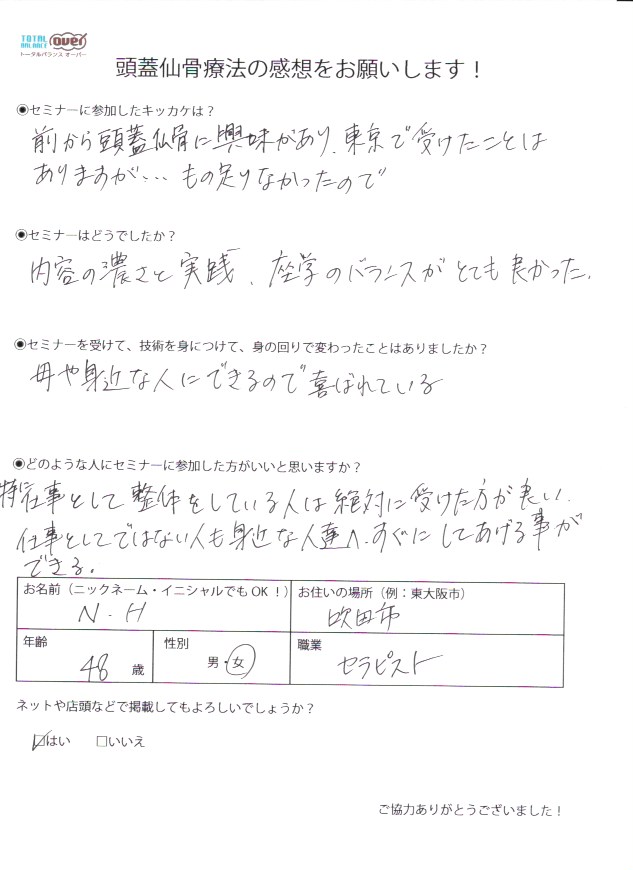 TOTAL BALANCE over
トータルバランス オーバー
頭蓋仙骨療法の感想をお願いします！
◉セミナーに参加したキッカケは？
前から頭蓋仙骨に興味があり、東京で受けたことは
ありますが… もの足りなかったので
◉セミナーはどうでしたか？
内容の濃さと実践、座学のバランスがとても良かった。
◉セミナーを受けて、技術を身につけて、身の回りで変わったことはありましたか？
母や身近な人にできるので喜ばれている
◉どのような人にセミナーに参加した方がいいと思いますか？
特に仕事として整体をしている人は絶対に受けた方が良い。
仕事としてではない人も身近な人達へ、すぐにしてあげる事が
できる。
お名前（ニックネーム・イニシャルでもOK！） お住いの場所（例：東大阪市）
N・H 吹田市
年齢 性別 職業
48 歳 男・女 セラピスト
ネットや店頭などで掲載してもよろしいでしょうか？
☑はい □いいえ
ご協力ありがとうございました！